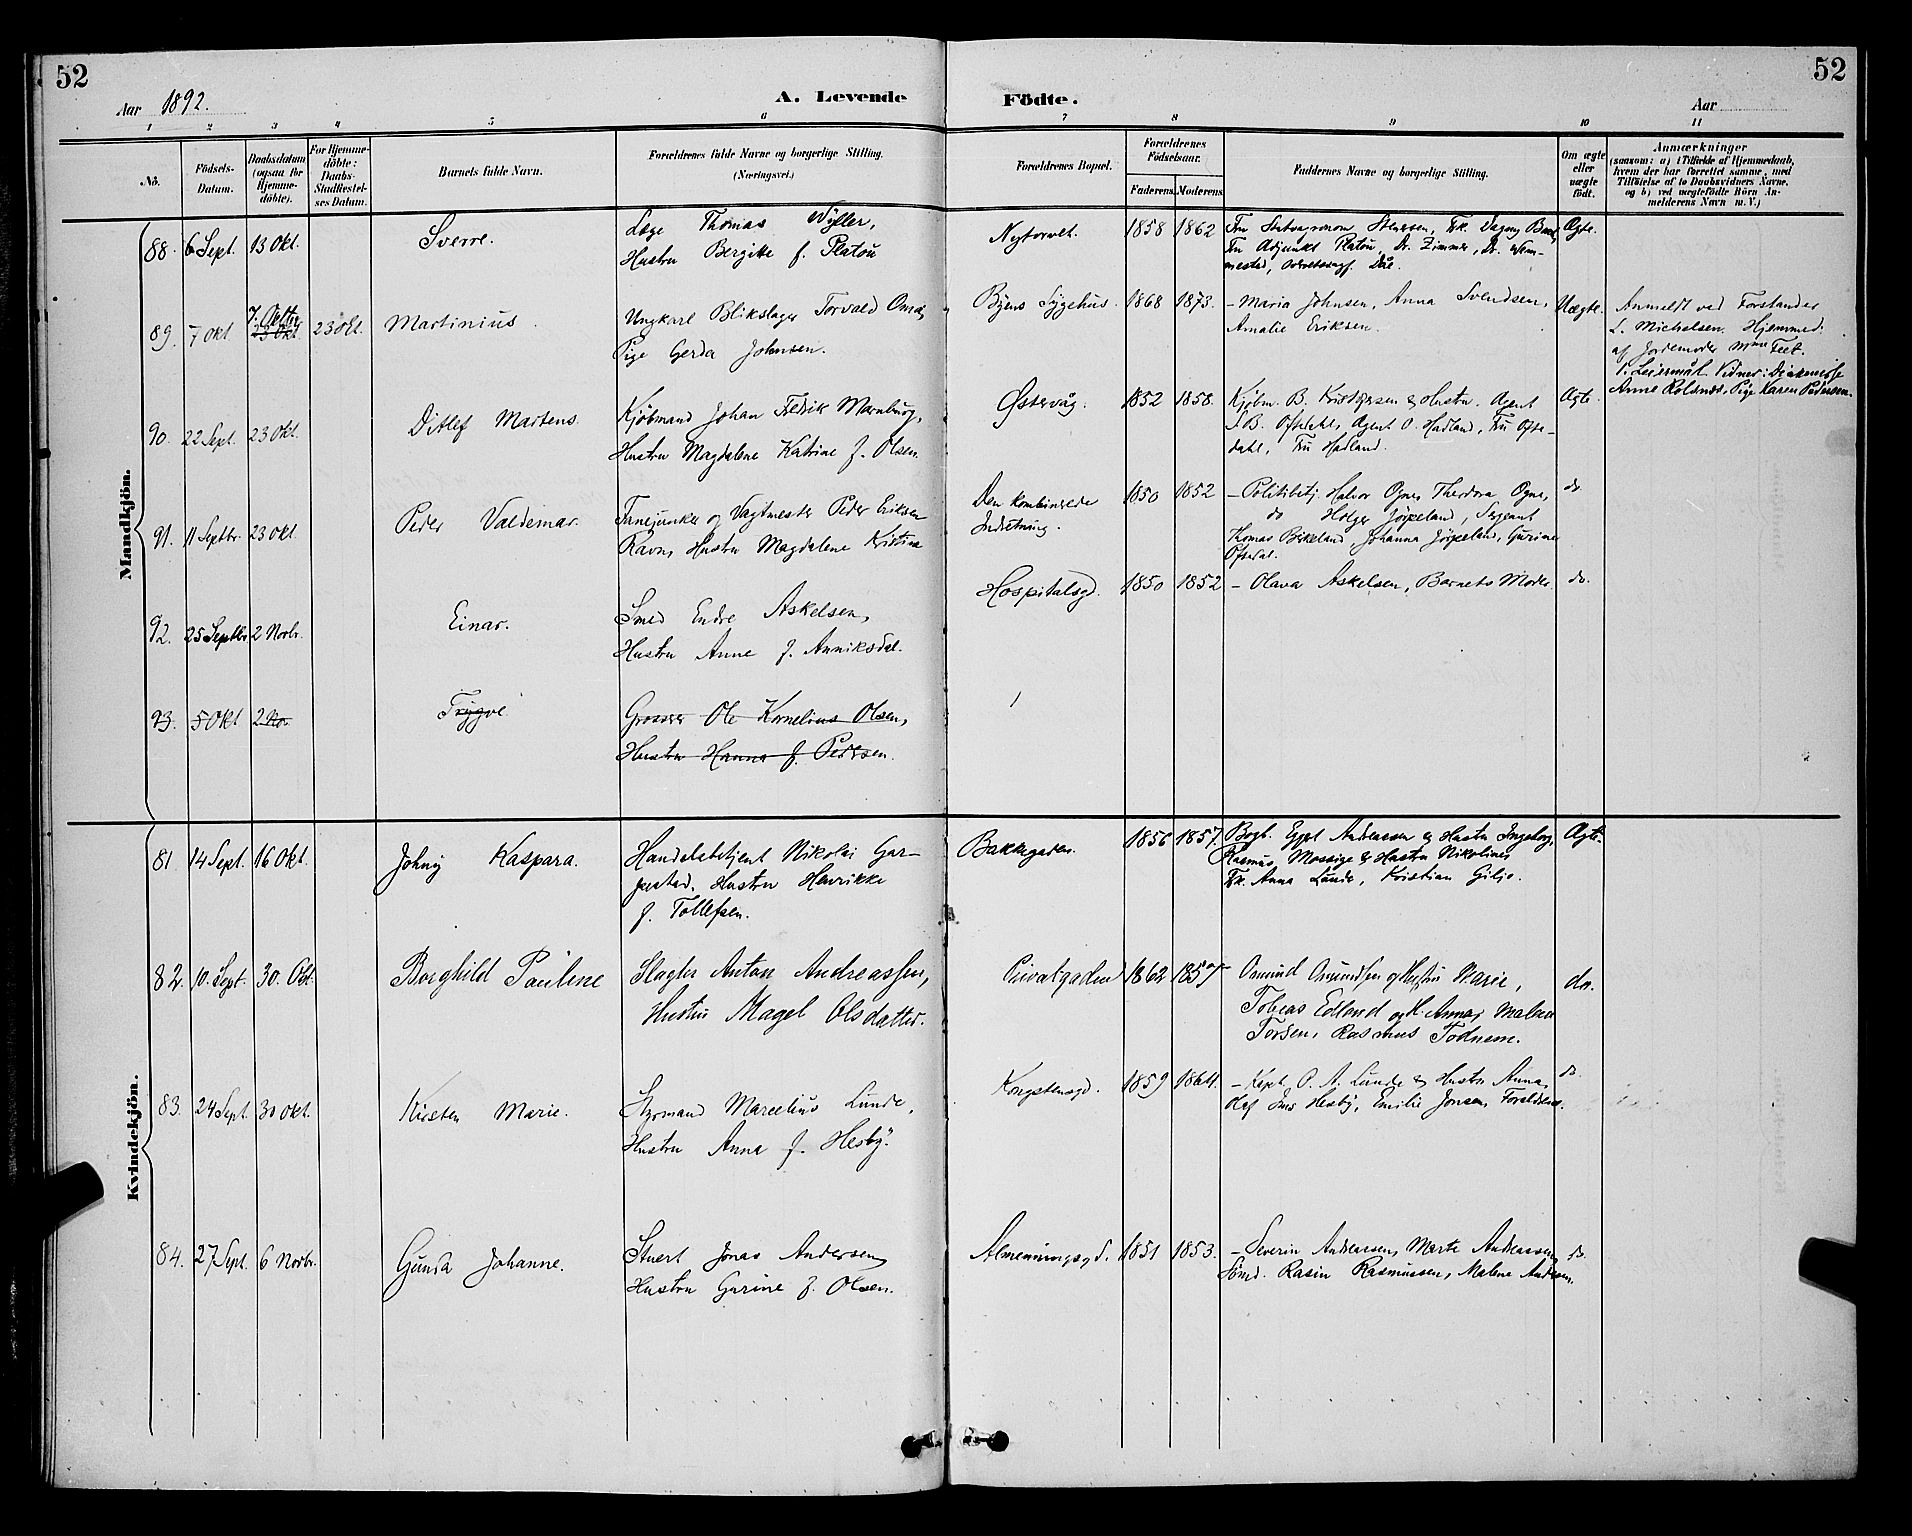 52
Aar 1892.
A. Levende
1 2 3 4 5 6
No.
Födsels-
Datum.
Daabsdatum
(ogsaa for
Hjemme-
döbte).
For Hjemme-
döbte:
Daabs-
Stadfæstel-
ses Datum.
Barnets fulde Navn.
Forældrenes fulde Navne og borgerlige Stilling.
(Næringsvei.)
Mandkjön.
88. 6 Sept. 13 Okt. Sverre. Læge Thomas Wyller,
Hustru Bergitte f. Platou
89. 7 Okt 7. Oktbr 23 Okt 23 Okt. Martinius. Ungkarl Blikslager Torvald
Pige Gerda Johnsen.
90. 22 Sept. 23 Okt. Ditlef Martens. Kjöbmand Johan Fredrik Marnburg,
Hustru Magdalene Katrine f. Olsen.
91. 11 Septbr. 23 Okt. Peder Valdemar. Fanejunker og Vagtmester Peder Eriksen
Ravn, Hustru Magdalene Kristine
92. 25 Septbr 2 Novbr. Einar. Smed Endre Askelsen,
Hustru Anne f. Anniksdal.
93. 5 Okt 2 No. Trygve Grosserer Ole Kornelius Olsen,
Hustru Hanna f. Pedersen.
Kvindekjön.
81. 14 Sept. 16 Okt. Johny Kaspara. Handelsbetjent Nikolai Gar-
pestad. Hustru Henrikke
f. Tollefsen.
82. 10. Sept. 30. Okt. Borghild Pauline Slagter Anton Andreassen,
Hustru Magel Olsdatter.
83. 24 Sept. 30 Okt. Kirsten Marie. Styrmand Marcelius Lunde,
Hustru Anna f. Hesby.
84. 27 Sept. 6 Novbr. Gunda Johanne. Stuert Jonas Andersen
Hustru Gurine f. Olsen.
52
Födte.
Aar
7 8 9 10 11
Forældrenes Bopæl.
Forældrenes
Födselsaar.
Faderens. Moderens.
Faddernes Navne og borgerlige Stilling.
Om ægte
eller
uægte
födt.
Anmærkninger
(saasom: a) i Tilfælde af Hjemmedaab,
hvem der har forrettet samme, med
Tilföielse af to Daabsvidners Navne,
og b) ved uægtefödte Börn An-
melderens Navn m. V.)
Nytorvet. 1858 1862 Fru Stensen, Frk. Dagny
Fru Adjunkt Platou, Dr. Zimmer, Dr.
Ægte.
Byens Sygehus. 1868 1873. - Maria Johnsen, Anna Svendsen,
Amalie Eriksen. Uægte. Anmeldt ved Forstander
L. Michelsen. Hjemmed.
af Jordemoder Mme Feet.
Vidner: Diakonisse
Anne Rolsnæs, Pige Karen Pedersen.
Østervåg. 1852 1858. Kjöbm. B. Kristgersen & Hustru. Agent
Oftedahl, Agent O. Hadland, Fru Ofte-
dahl, Fru Hadland. Ægte.
Den kombinerede
Indretning. 1850 1852 - Politibetj. Halvor Ogne, Theodora Ogne,
do Holger Jörpeland, Sergeant
Tomas Birkeland, Johanna Jörpeland, Gurine
Oftedal. do
Hospitalsgd. 1850 1852 - Olava Askelsen, Barnets Moder. do.
Bakkegaden. 1856 1857. Bogb. Andreassen & Hustru Ingeborg,
Rasmus Mossige & Hustru Nikoline,
Frk. Anna Lunde, Kristian Gilje. Ægte.
Privatgaden 1862 1857 Osmund Osmundsen og Hustru Marie,
Tobias Edland og H. Anna, Malena
Torsen, Rasmus Todnem. do.
Kongstensgd. 1859 1864. - Kapt. P. A. Lunde & Hustru Anna,
Hesby, Emilie Jonsen, Forældrene. do
Almenningsgd. 1851 1853. - Severin Andreassen, Marte Andreassen,
Smed. Rasin Rasmussen, Malene Andersen. do.